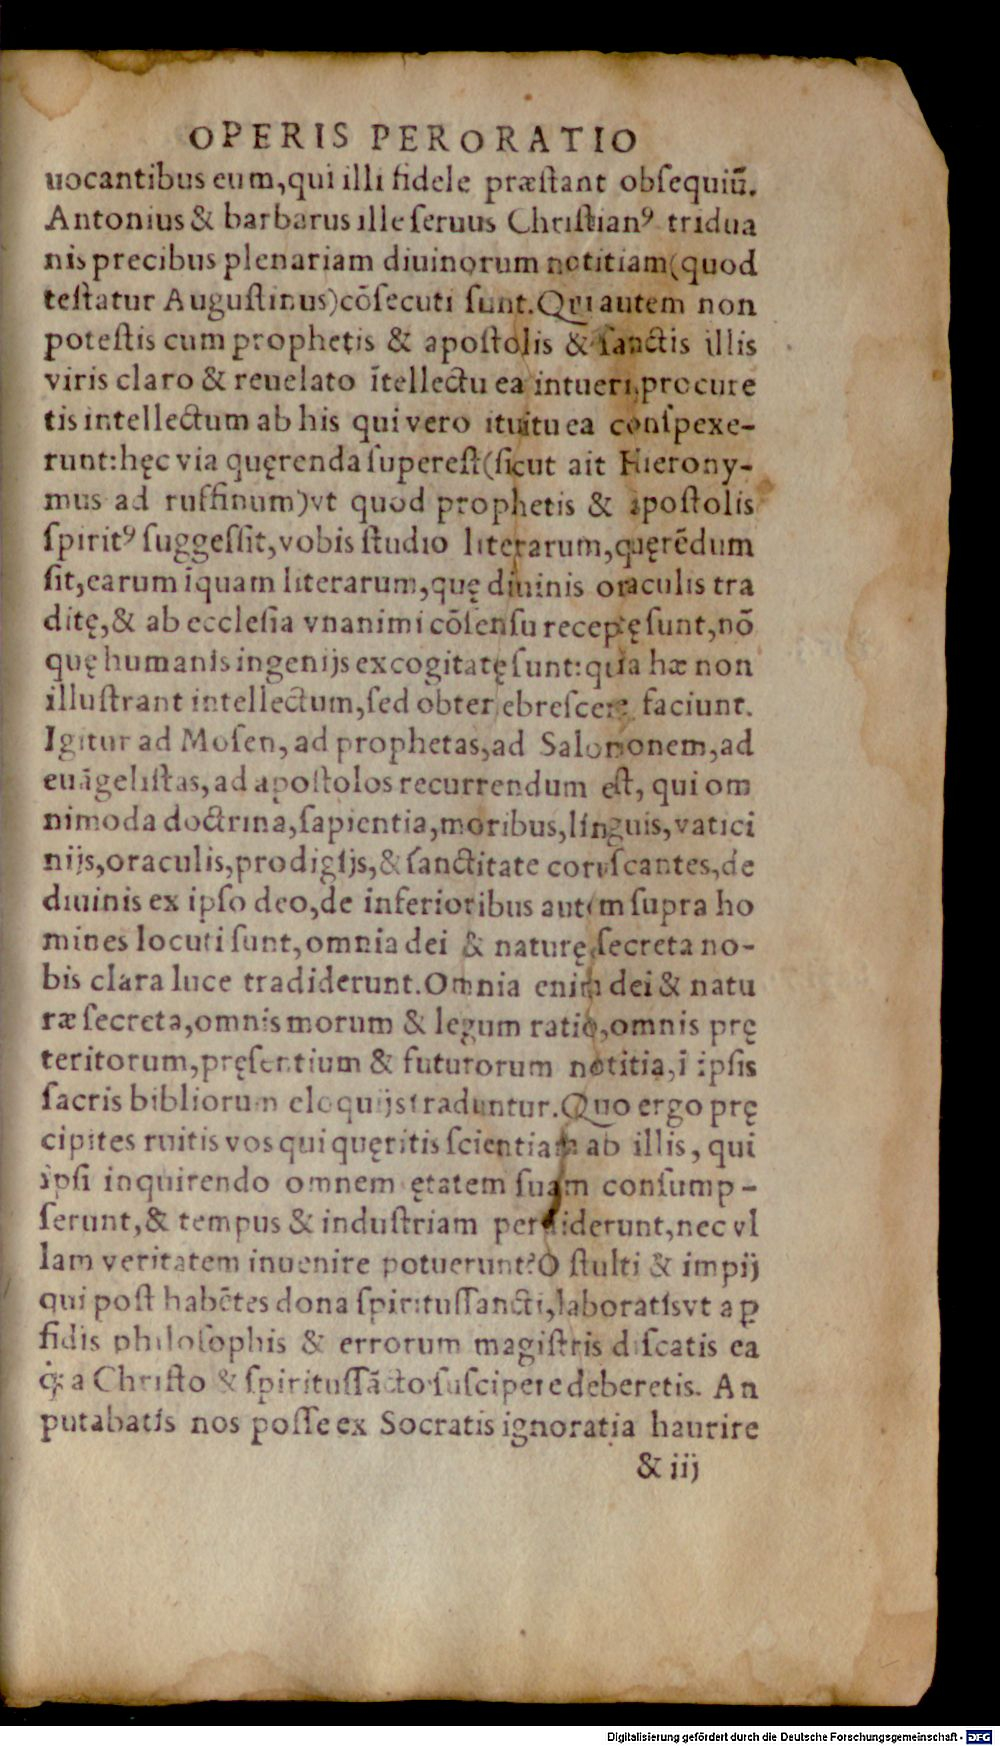 OPERIS PERORATIO
uocantibus eum,qui illi fidele præſtant obſequiū.
Antonius & barbarus ille ſeruus Chriſtianꝰ tridua
nis precibus plenariam diuinorum notitiam(quod
teſtatur Auguſtinus)cōſecuti ſunt.Qui autem non
poteſtis cum prophetis & apoſtolis & ſanctis illis
viris claro & reuelato ītellectu ea intueri,procure
tis intellectum ab his qui vero ituitu ea conſpexe-
runt:hęc via quęrenda ſupereſt(ſicut ait Hierony-
mus ad ruffinum)vt quod prophetis & apoſtolis
ſpiritꝰ ſuggeſſit,vobis ſtudio literarum,quęrēdum
ſit,earum īquam literarum,quę diuinis oraculis tra
ditę,& ab eccleſia vnanimi cōſenſu receptę ſunt,nō
quę humanis ingenijs excogitatę ſunt:quia hæ non
illuſtrant intellectum,ſed obtenebreſcere faciunt.
Igitur ad Moſen, ad prophetas,ad Salomonem,ad
euāgeliſtas,ad apoſtolos recurrendum eſt, qui om
nimoda doctrina,ſapientia,moribus,linguis,vatici
nijs,oraculis,prodigijs,& ſanctitate coruſcantes,de
diuinis ex ipſo deo,de inferioribus autem ſupra ho
mines locuti ſunt,omnia dei & naturę ſecreta no-
bis clara luce tradiderunt.Omnia enim dei & natu
ræ ſecreta,omnis morum & legum ratio,omnis prę
teritorum,pręſentium & futurorum notitia,ī ipſis
ſacris bibliorum eloquijs traduntur.Quo ergo prę
cipites ruitis vos qui quęritis ſcientiam ab illis, qui
ipſi inquirendo omnem ętatem ſuam conſump-
ſerunt,& tempus & induſtriam perdiderunt,nec vl
lam veritatem inuenire potuerunt?O ſtulti & impij
qui poſt habētes dona ſpirituſſancti,laboratis vt a ꝑ
fidis philoſophis & errorum magiſtris diſcatis ea
q̄; a Chriſto & ſpirituſſācto ſuſcipere deberetis. An
putabatis nos poſſe ex Socratis ignoratia haurire
& iij
Digitalisierung gefördert durch die Deutsche Forschungsgemeinschaft - DFG